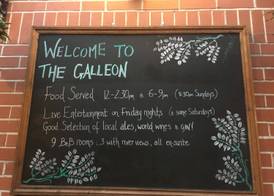 WELCOME TO
THE GALLEON
FOOD SERVED 12-2.30pm & 6-9pm (8.30pm Sundays)
Live Entertainment on Friday nights (& some Saturdays)
Good Selection of local ales, world wines & GIN!
9 B&B rooms ...3 with river views, all en-suite